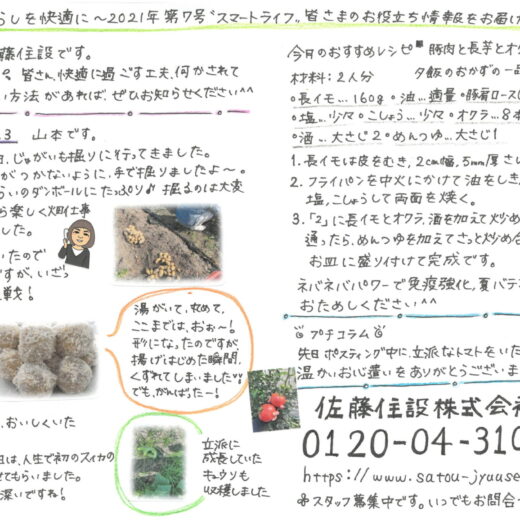 らしを快適に～2021年第7号"スマートライフ"皆さまのお役立ち情報をお届け
藤住設です。
皆さん、快適に過ごす工夫、何かされて
方法があれば、ぜひお知らせください^^
.3 山本です。
、じゃがいも掘りに行ってきました。
がつかないように、手で掘りましたよ～。
らいのダンボールにたっぷり♪掘るのは大変
ら楽しく畑仕事
した。
いたので
ですが、いざっ
戦!
湯がいて、丸めて、
ここまでは、おぉ～!
形になったのですが、
揚げはじめた瞬間、
くずれてしまいました
でも、がんばったー!
、おいしくいた
日は、人生で初のスイカの
せてもらいました。
深いですね!
立派に
成長していた
キュウリも
収穫しました
今月のおすすめレシピ 豚肉と長芋とオク
夕飯のおかずの一品
材料:2人分
・長イモ…160g ・油…適量・豚肩ロース(
・塩…少々 ・こしょう…少々 ・オクラ…8本
・酒…大さじ2 ・めんつゆ…大さじ1
1.長イモは皮をむき、2cm幅、5mm厚さ
2.フライパンを中火にかけて油をしき
塩、こしょうして両面を焼く。
3.「2」に長イモとオクラ、酒を加えて炒め
通ったら、めんつゆを加えてさっと炒め
お皿に盛り付けて完成です。
ネバネバパワーで免疫強化、夏バテ
おためしください^^
プチコラム
先日ポスティング中に、立派なトマトをいた
温かいお心遣いをありがとうございま
佐藤住設株式会
0120-04-310
https://www.satou-jyuuse
スタッフ募集中です。いつでもお問合